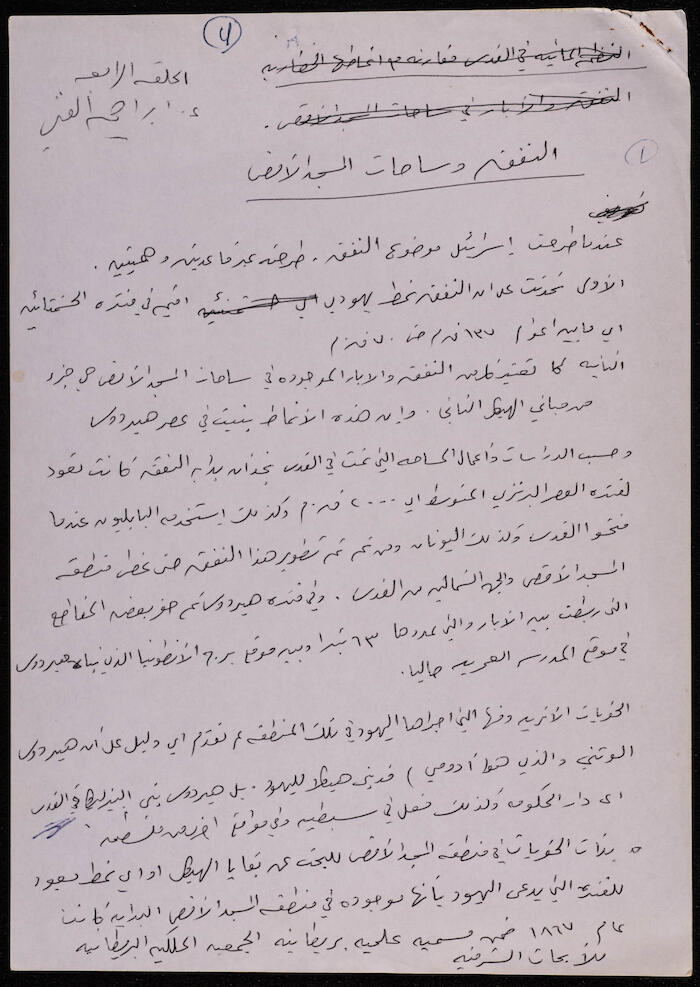 4
الحلقة الرابعة
د. ابراهيم الفني
النظم المائية في القدس مقارنة مع انماطها الحضارية
النفق والآبار في ساحات المسجد الأقصى .
النفق وساحات المسجد الأقصى
1
عندما طرحت إسرائيل موضوع النفق . طرحته عبر قاعدتين وهميتين .
الأولى تحدثت على ان النفق نمط يهودي اي اقيم في فترة الحشمنائيه
اي ما بين اعوام ١٣٧ ق.م حتى ٧٠ ق.م
الثانية كما تعتبر كل من النفق والابار الموجودة في ساحات المسجد الأقصى هي جزء
من مباني الهيكل الثاني . وان هذه الأنماط بنيت في عصر هيرودس
وحسب الدراسات وأعمال المساحه التي تمت في القدس نجد ان بداية النفق كانت تعود
لفترة العصر البرنزي المتوسط اي ٢٠٠٠ ق.م وكذلك استخدمه البابليون عندما
فتحوا القدس وكذلك اليونان ومن ثم تم تطوير هذا النفق حتى غطى منطقة
المسجد الأقصى والجهة الشمالية من القدس . وفي فترة هيرودس تم حفر بعض المقاطع
التي ربطت بين الابار والتي عددها ٦٣ بئرا وبين موقع برج الأنطونيا الذي بناه هيرودس
في موقع المدرسة العمرية حاليا .
الحفريات الأثرية ومنها التي اجراها اليهود في تلك المنطقة لم تقدم اي دليل على ان هيرودس
الوثني والذي هو ( أدومي ) قد بنى هيكلا لليهود . بل هيرودس بنى البازليكا في القدس
اي دار الحكومه وكذلك فعل في سبسطيه وفي مواقع اخرى من فلسطين
بدأت الحفريات في منطقة المسجد الأقصى للبحث عن بقايا الهيكل او اي نمط يعود
للفترة التي يدعي اليهود بأنها موجوده في منطقة المسجد الأقصى البداية كانت
عام ١٨٦٧ ضمن علمية بريطانية الجمعية الملكية البريطانية
للأبحاث الشرقية